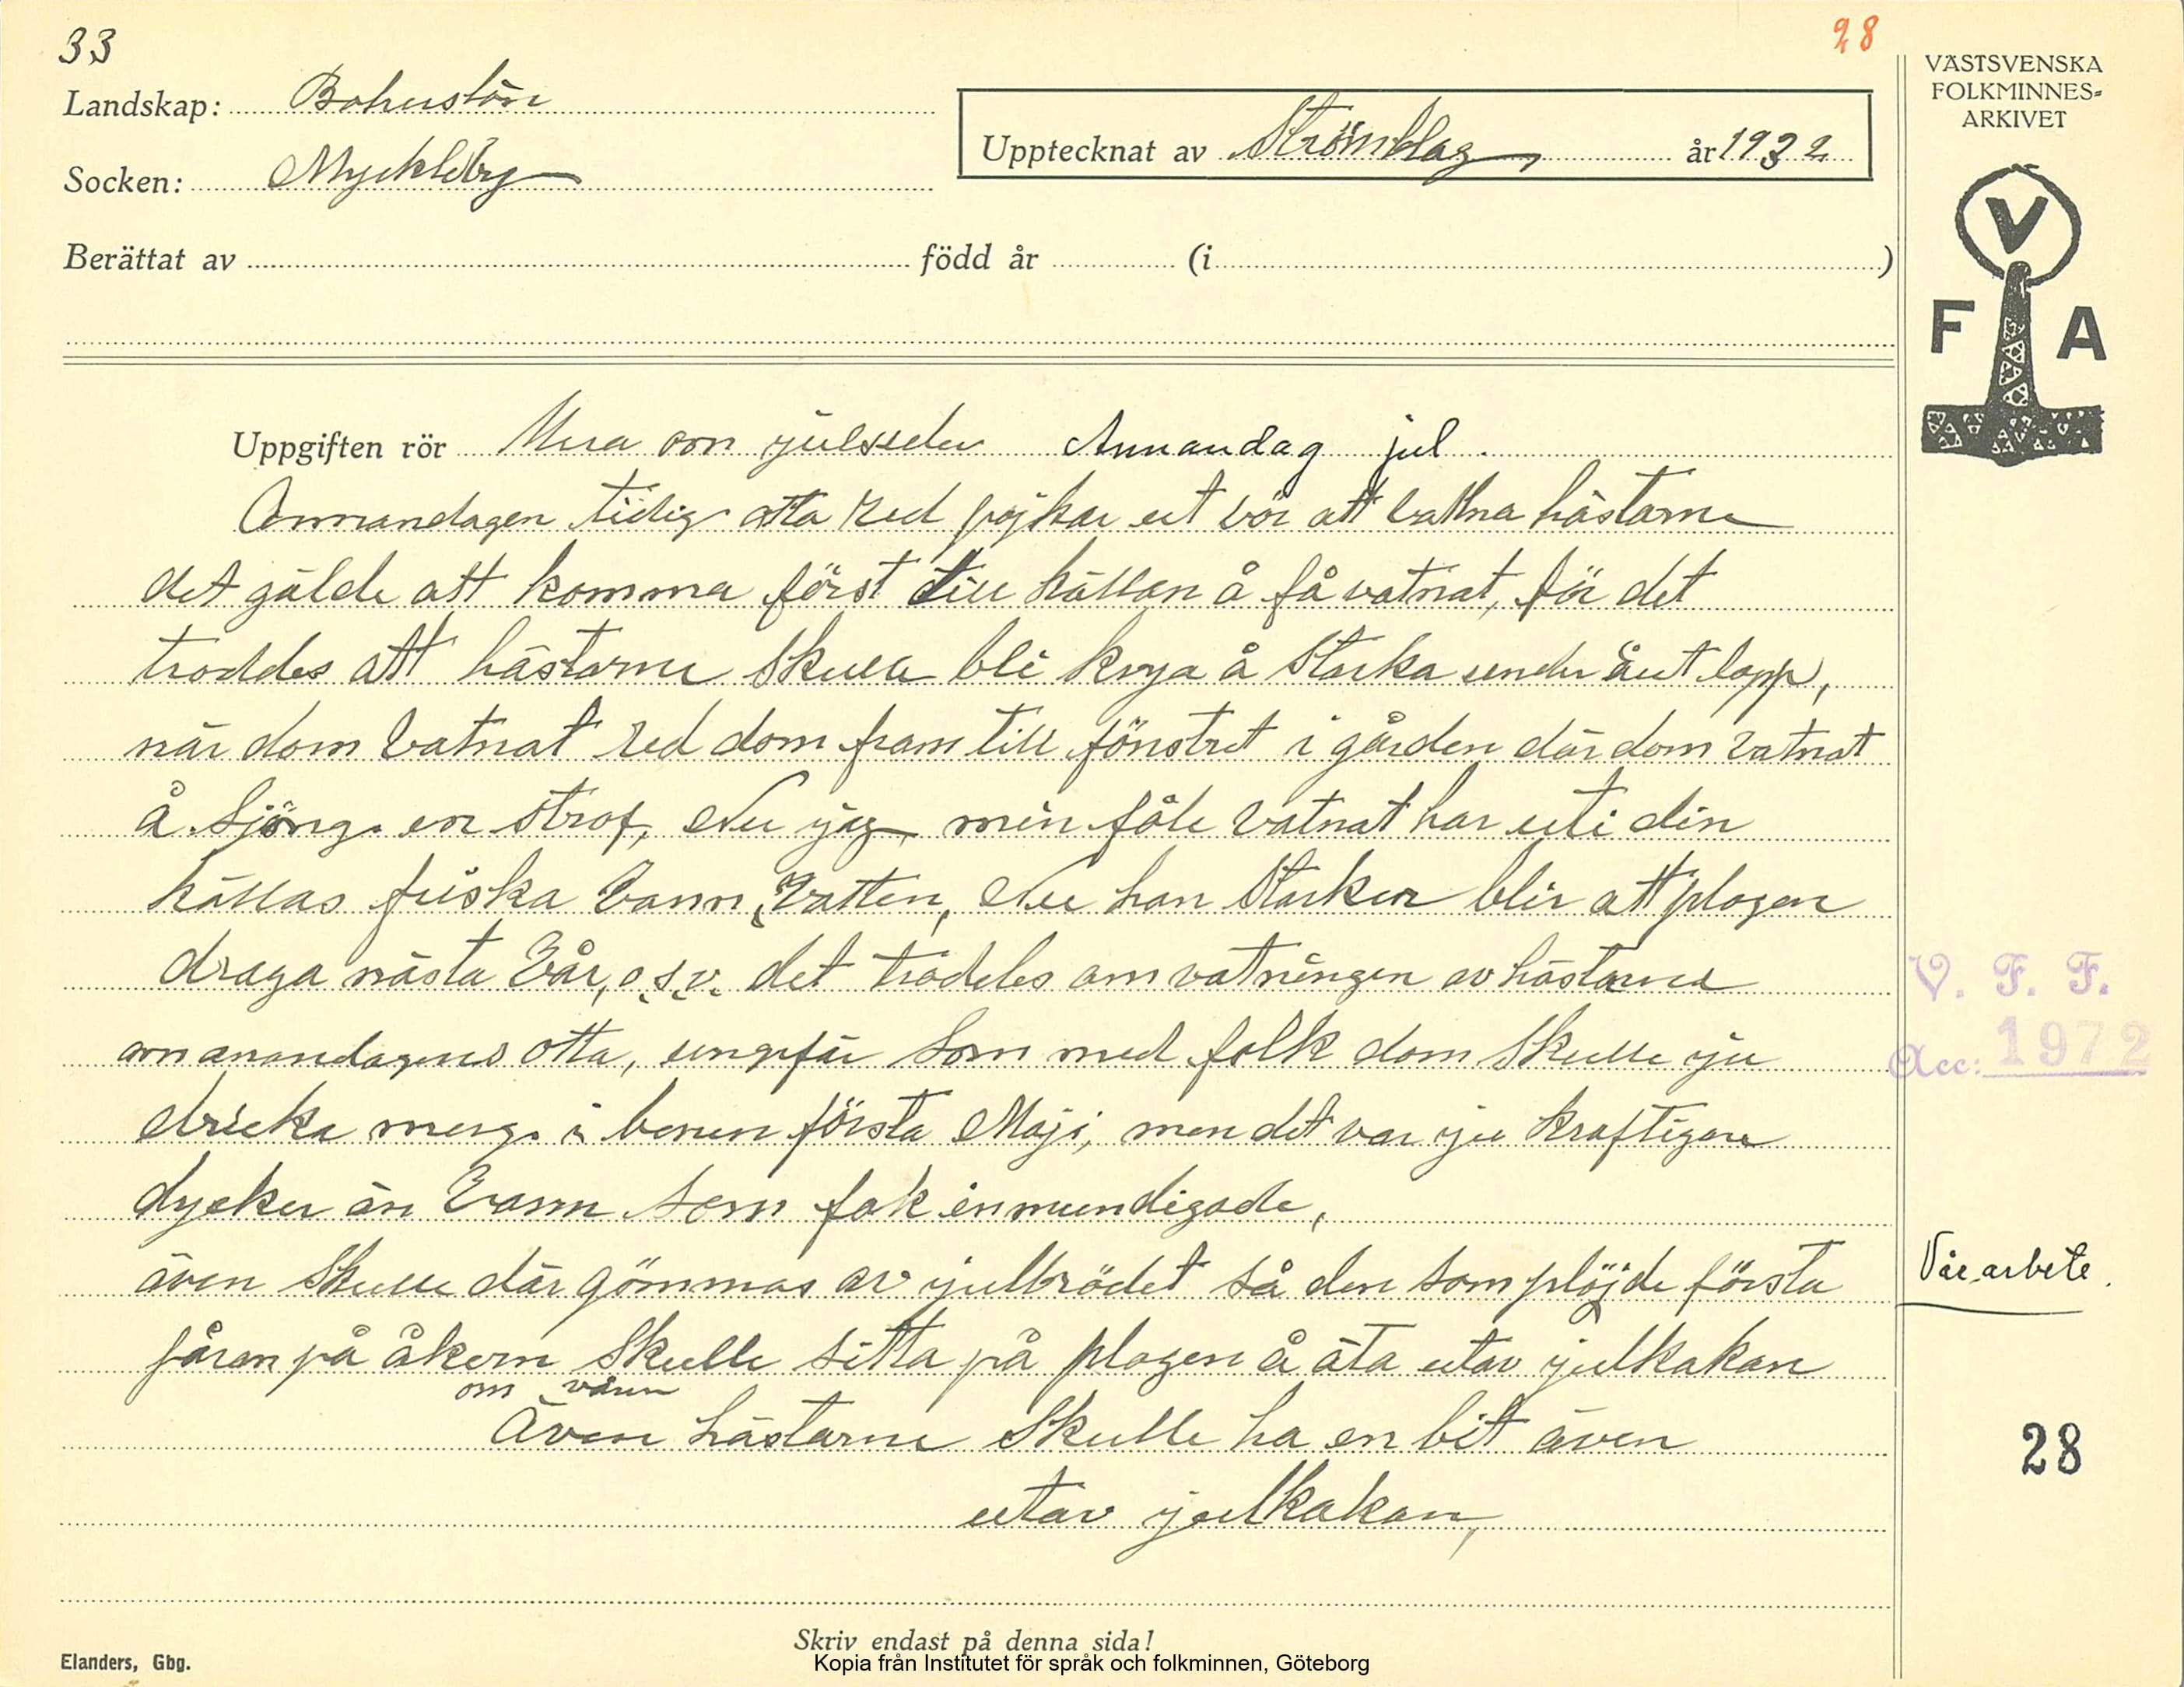 33
28
Landskap: Bohuslän
Socken: Myckleby
Upptecknat av Strömblag, år 1932
Berättat av född år (i )
VÄSTSVENSKA
FOLKMINNES-
ARKIVET
V
F A
Uppgiften rör Mera om julseder Annandag jul.
Annandagen tidig otta red pojkar ut för att vattna hästarne
det gälde att komma först till källan å få vatnat, för det
troddes att hästarne skulle bli krya å starka under åut lopp,
när dom vatnat red dom fram till fönstret i gården där dom vatnat
å sjöng en strof, Nu jag min fåle vatnat har uti din
källas friska vann, vatten, Nu han starker blir att plogen
draga nästa Vår, o.s.v. det troddes om vatningen av hästarna
om anandagens otta, ungefär som med folk dom skulle ju
dricka merg i benen första Maji, men det var ju kraftigare
dycker än vann som fok inmundigade,
även skulle där gömmas av julbrödet så den som plöjde första
fåran på åkern skulle sitta på plogen å äta utav julkakan
om våren
Även hästarne skulle ha en bit även
utav julkakan,
V. F. F.
Acc: 1972
Vårarbete.
28
Skriv endast på denna sida!
Elanders, Gbg.
Kopia från Institutet för språk och folkminnen, Göteborg